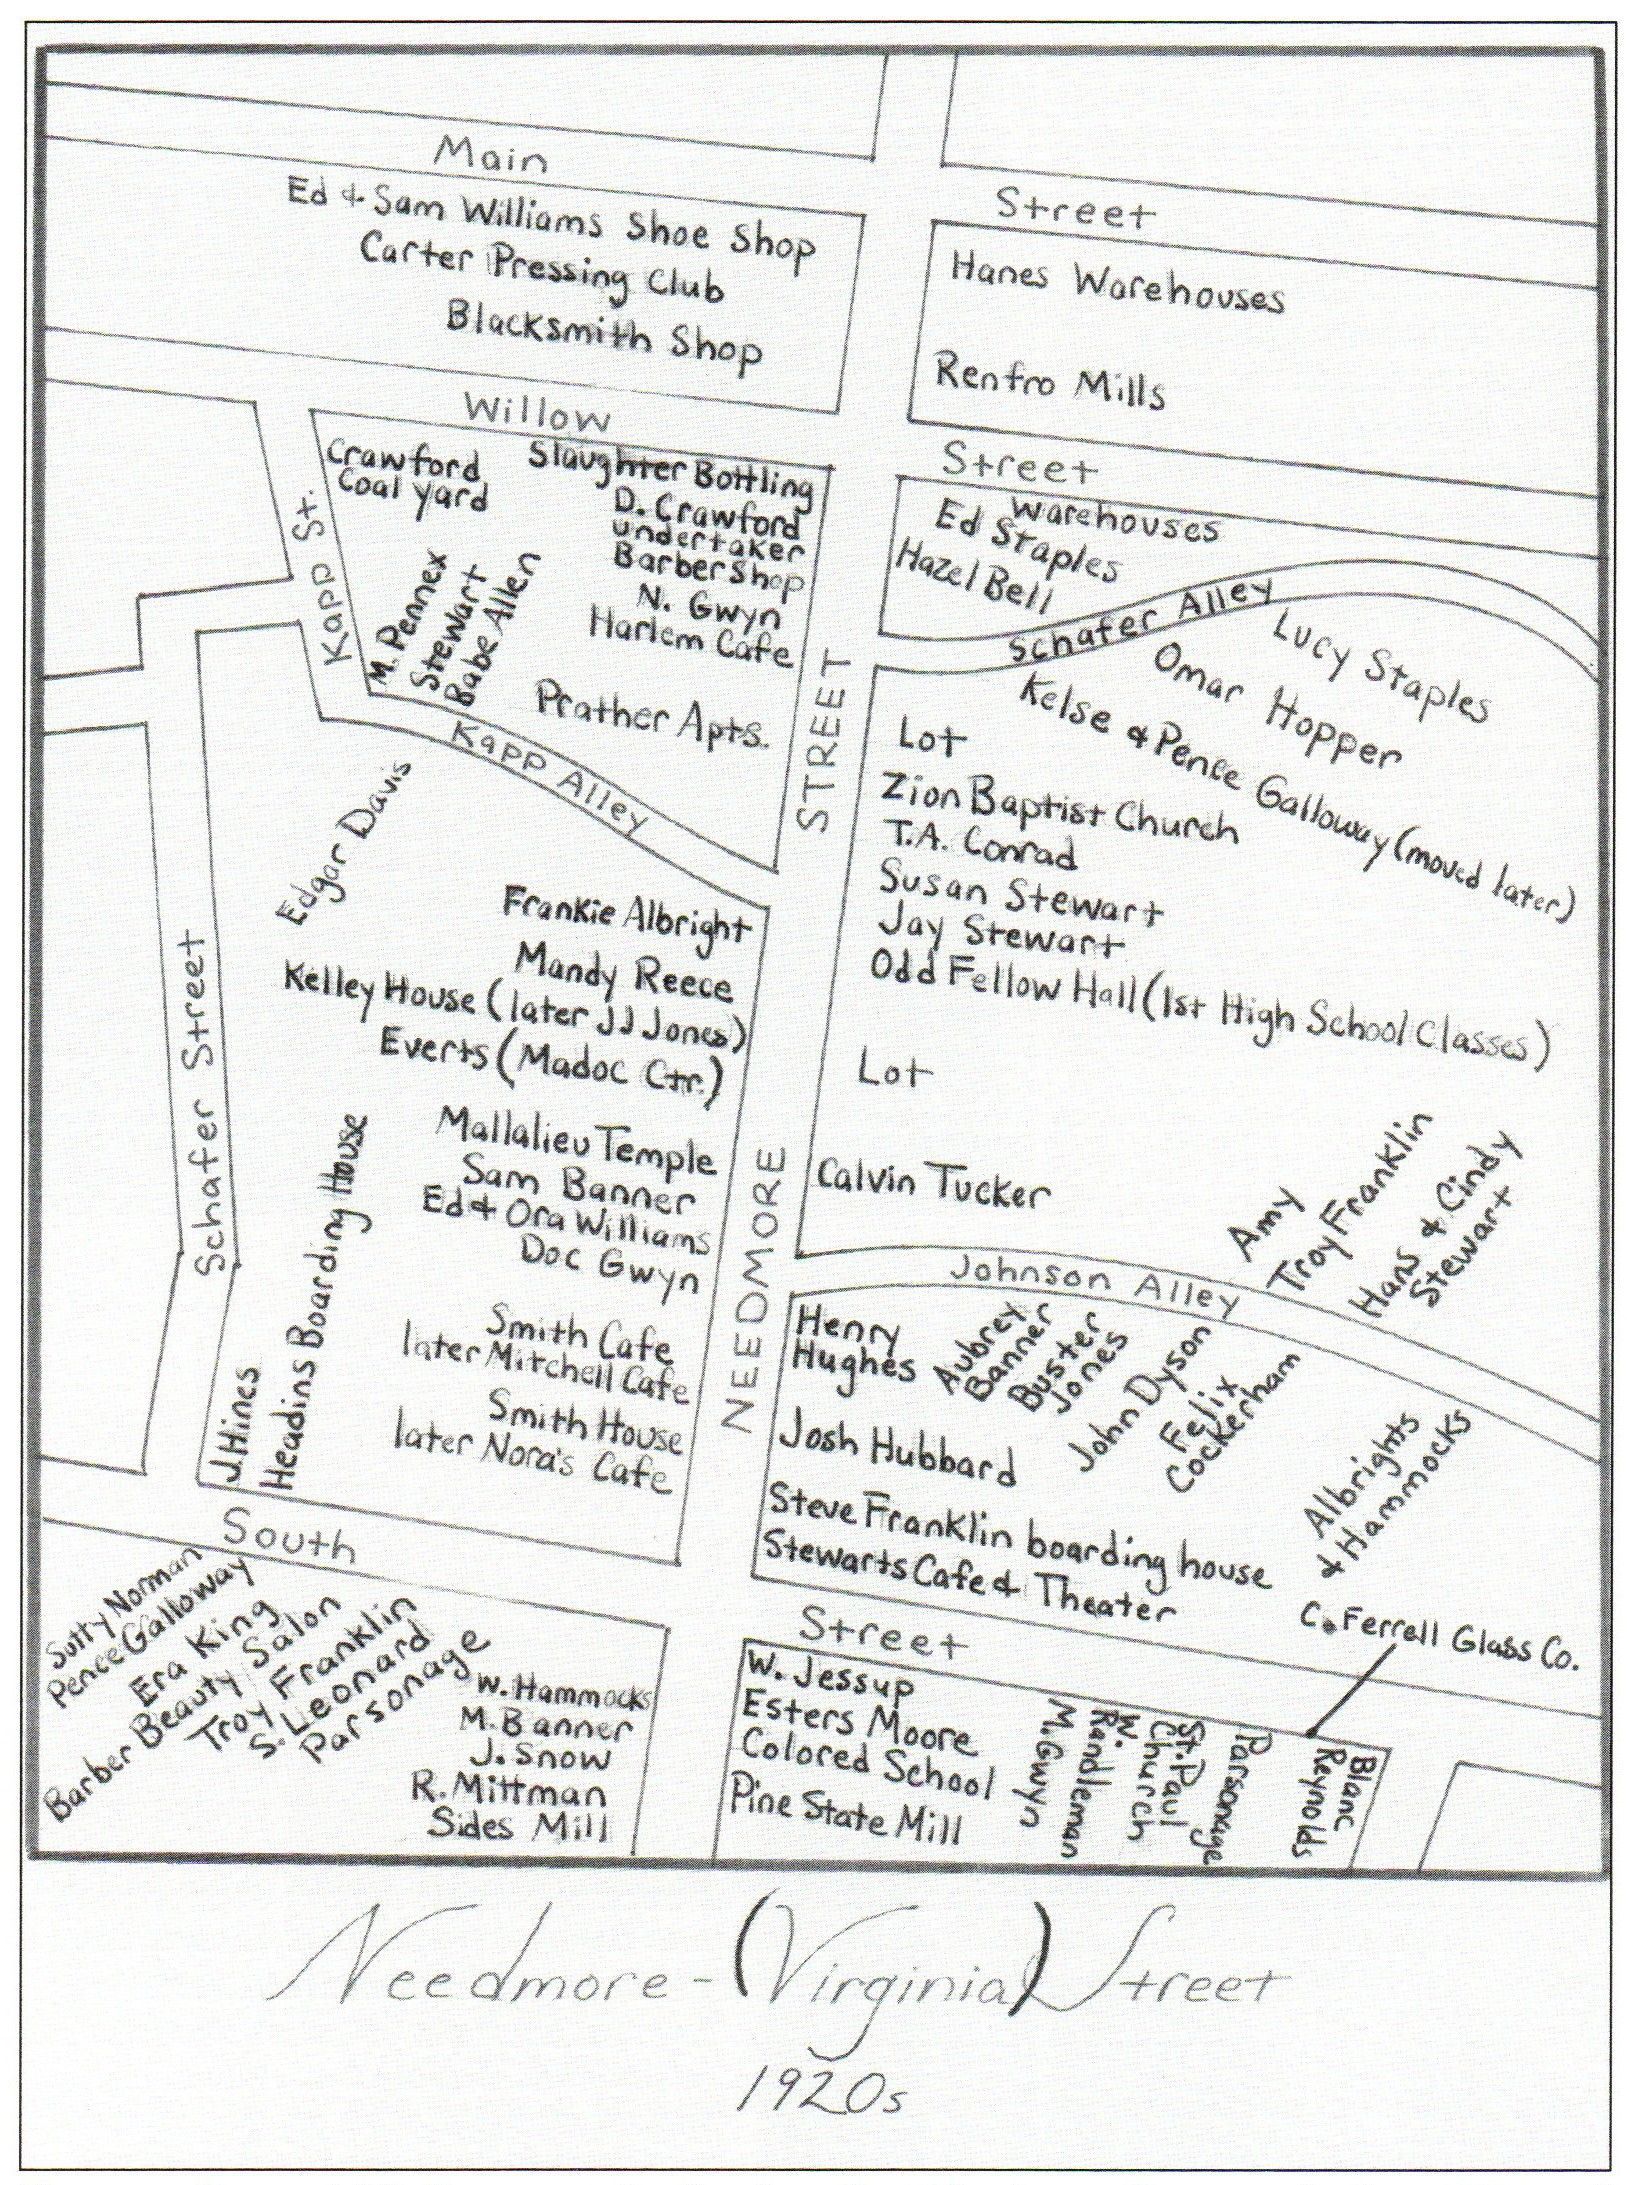 Main
Street
Ed & Sam Williams Shoe Shop
Carter Pressing Club
Blacksmith Shop
Hanes Warehouses
Renfro Mills
Willow
Street
Crawford
Coal yard
Slaughter Bottling
D. Crawford
undertaker
Barber Shop
N. Gwyn
Harlem Cafe
Prather Apts.
M. Pennex
Stewart
Babe Allen
Kapp St.
Kapp Alley
Warehouses
Ed Staples
Hazel Bell
Schafer Alley
Lucy Staples
Omar Hopper
Kelse & Pence Galloway (moved later)
Lot
Zion Baptist Church
T.A. Conrad
Susan Stewart
Jay Stewart
Odd Fellow Hall (1st High School Classes)
Lot
Calvin Tucker
Amy
Troy Franklin
Hans & Cindy
Stewart
NEEDMORE STREET
Schafer Street
Edgar Davis
Frankie Albright
Mandy Reece
Kelley House (later JJ Jones)
Everts (Madoc Ctr.)
Mallalieu Temple
Sam Banner
Ed & Ora Williams
Doc Gwyn
Smith Cafe
later Mitchell Cafe
Smith House
later Nora's Cafe
J. Hines
Headins Boarding House
Johnson Alley
Henry
Hughes
Aubrey
Banner
Buster
Jones
John Dyson
Felix
Cockerham
Josh Hubbard
Steve Franklin boarding house
Stewarts Cafe & Theater
Albrights
& Hammocks
South
Street
C. Ferrell Glass Co.
Sutty Norman
Pence Galloway
Era King
Barber Beauty Salon
Troy Franklin
S. Leonard
Parsonage
W. Hammocks
M. Banner
J. Snow
R. Mittman
Sides Mill
W. Jessup
Esters Moore
Colored School
Pine State Mill
M. Gwyn
Randleman
W.
Church
St. Paul
Parsonage
Reynolds
Blanc
Needmore - (Virginia) Street
1920s